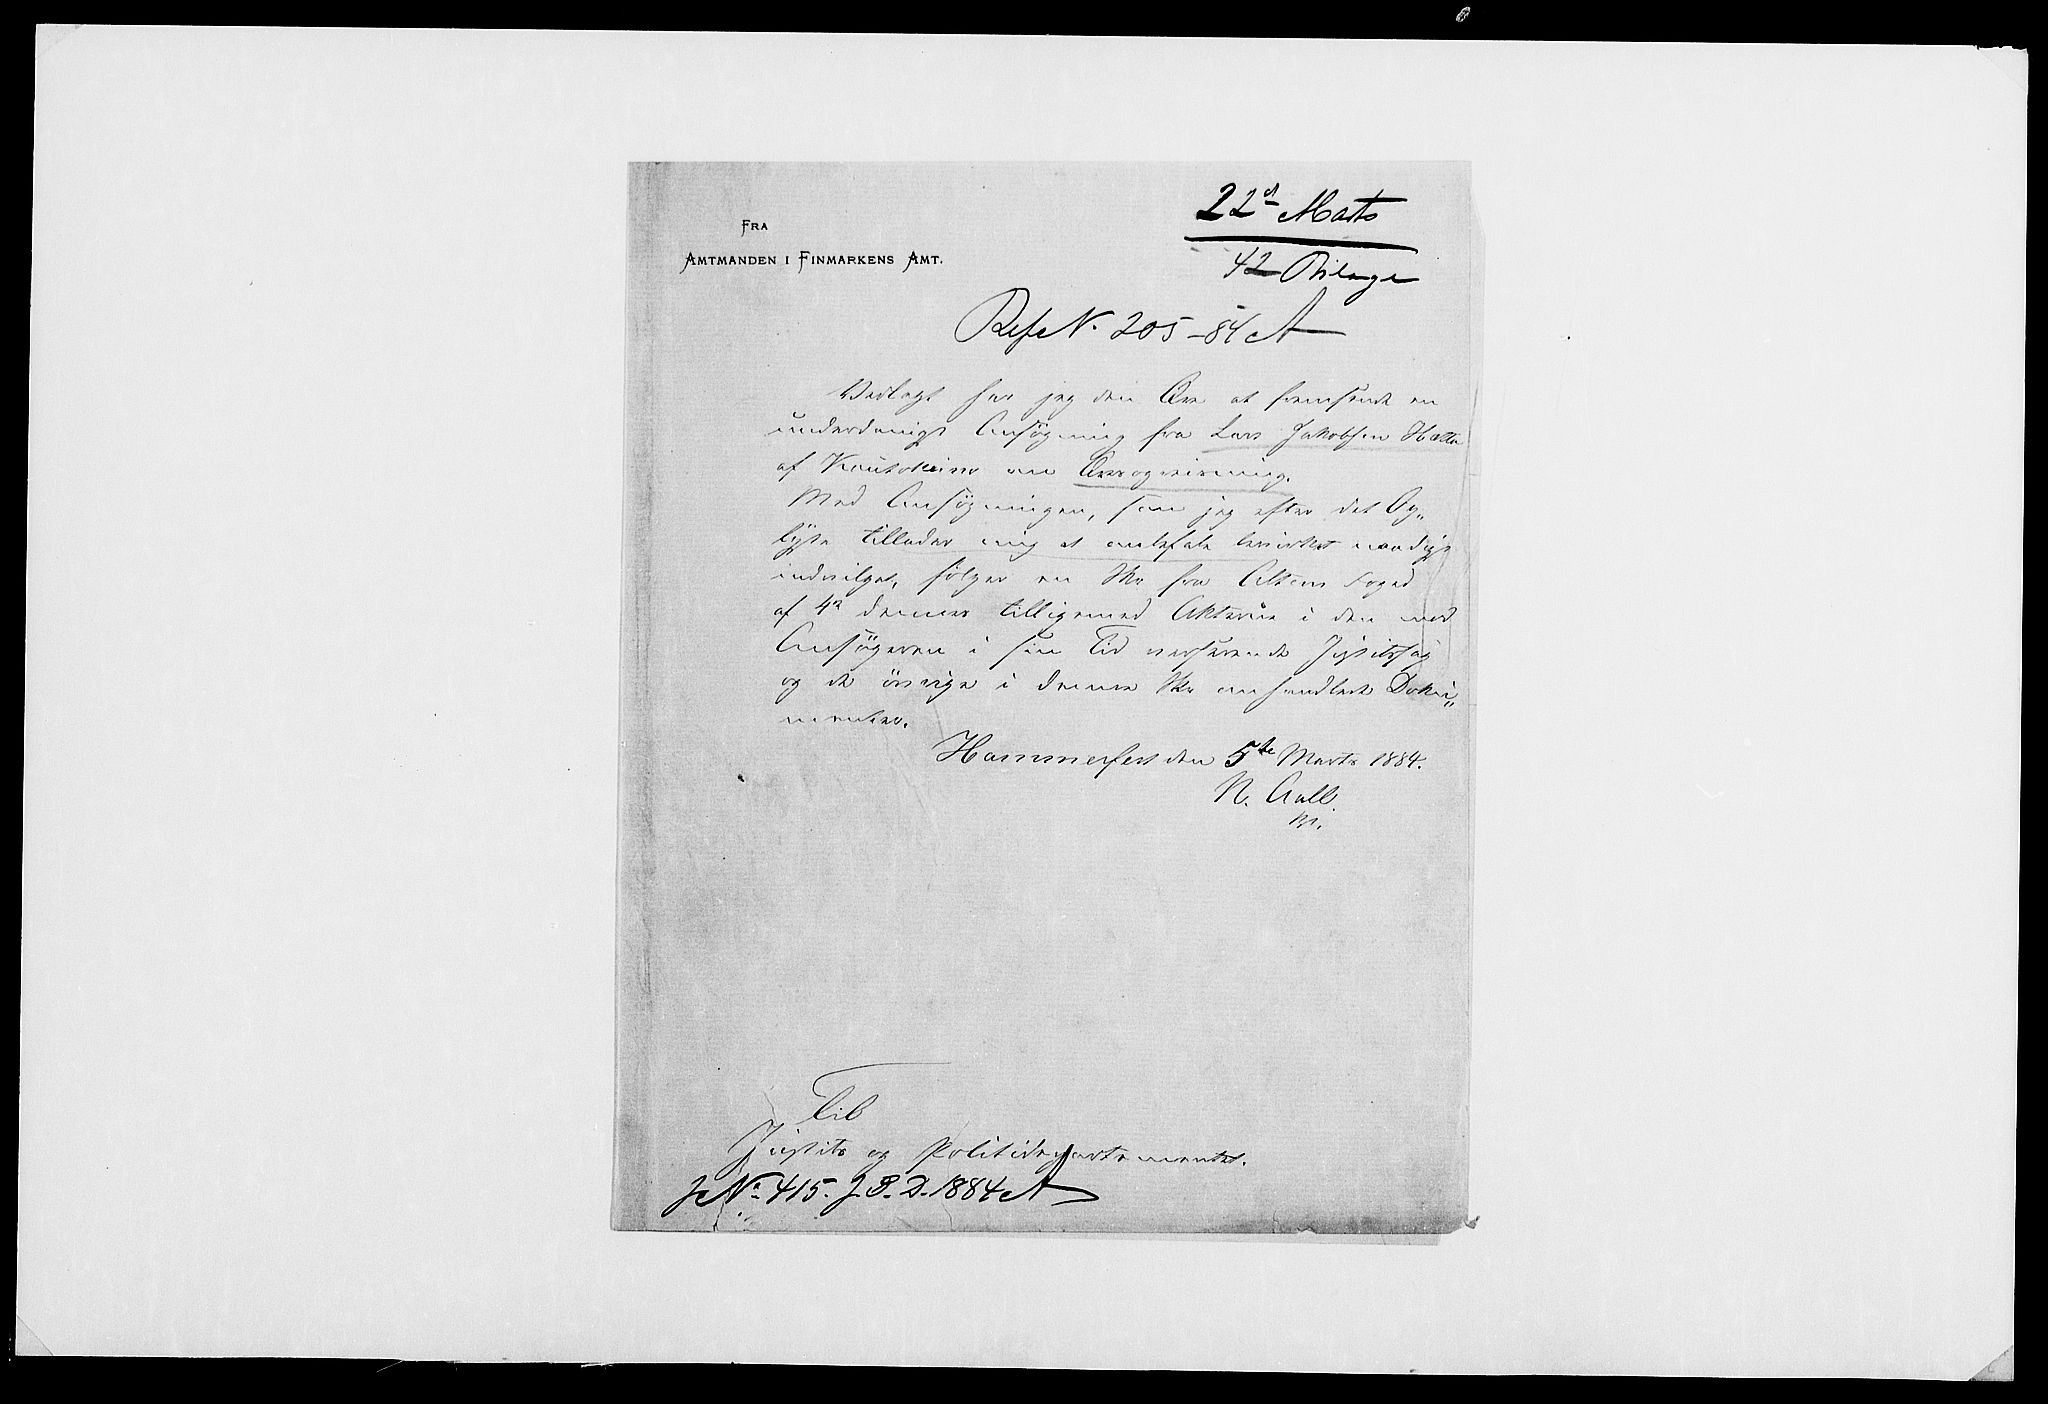 22d Marts
FRA
AMTMANDEN I FINMARKENS AMT.
42 Bilage
Ref. N. 205-84 A
Vedlagt har jeg den Ære at fremsende en
underdanigst Ansøgning fra Lars Jakobsen Hætta
af Kautokeino om Æresopreisning.
Med Ansøgningen, som jeg efter det Op„
lyste tillader mig at anbefale bevirket naadigst
indvilget, følger en Skr fra Altens Foged
af 4de dennes tilligemed Akterne i den mod
Ansøgeren i sin Tid verserende Justitssag
og de øvrige i denne Skr omhandlede Doku„
menter.
Hammerfest den 5te Marts 1884.
N. Aall
Til
Justits og Politidepartementet.
J. No. 415. J. P. D. 1884 A